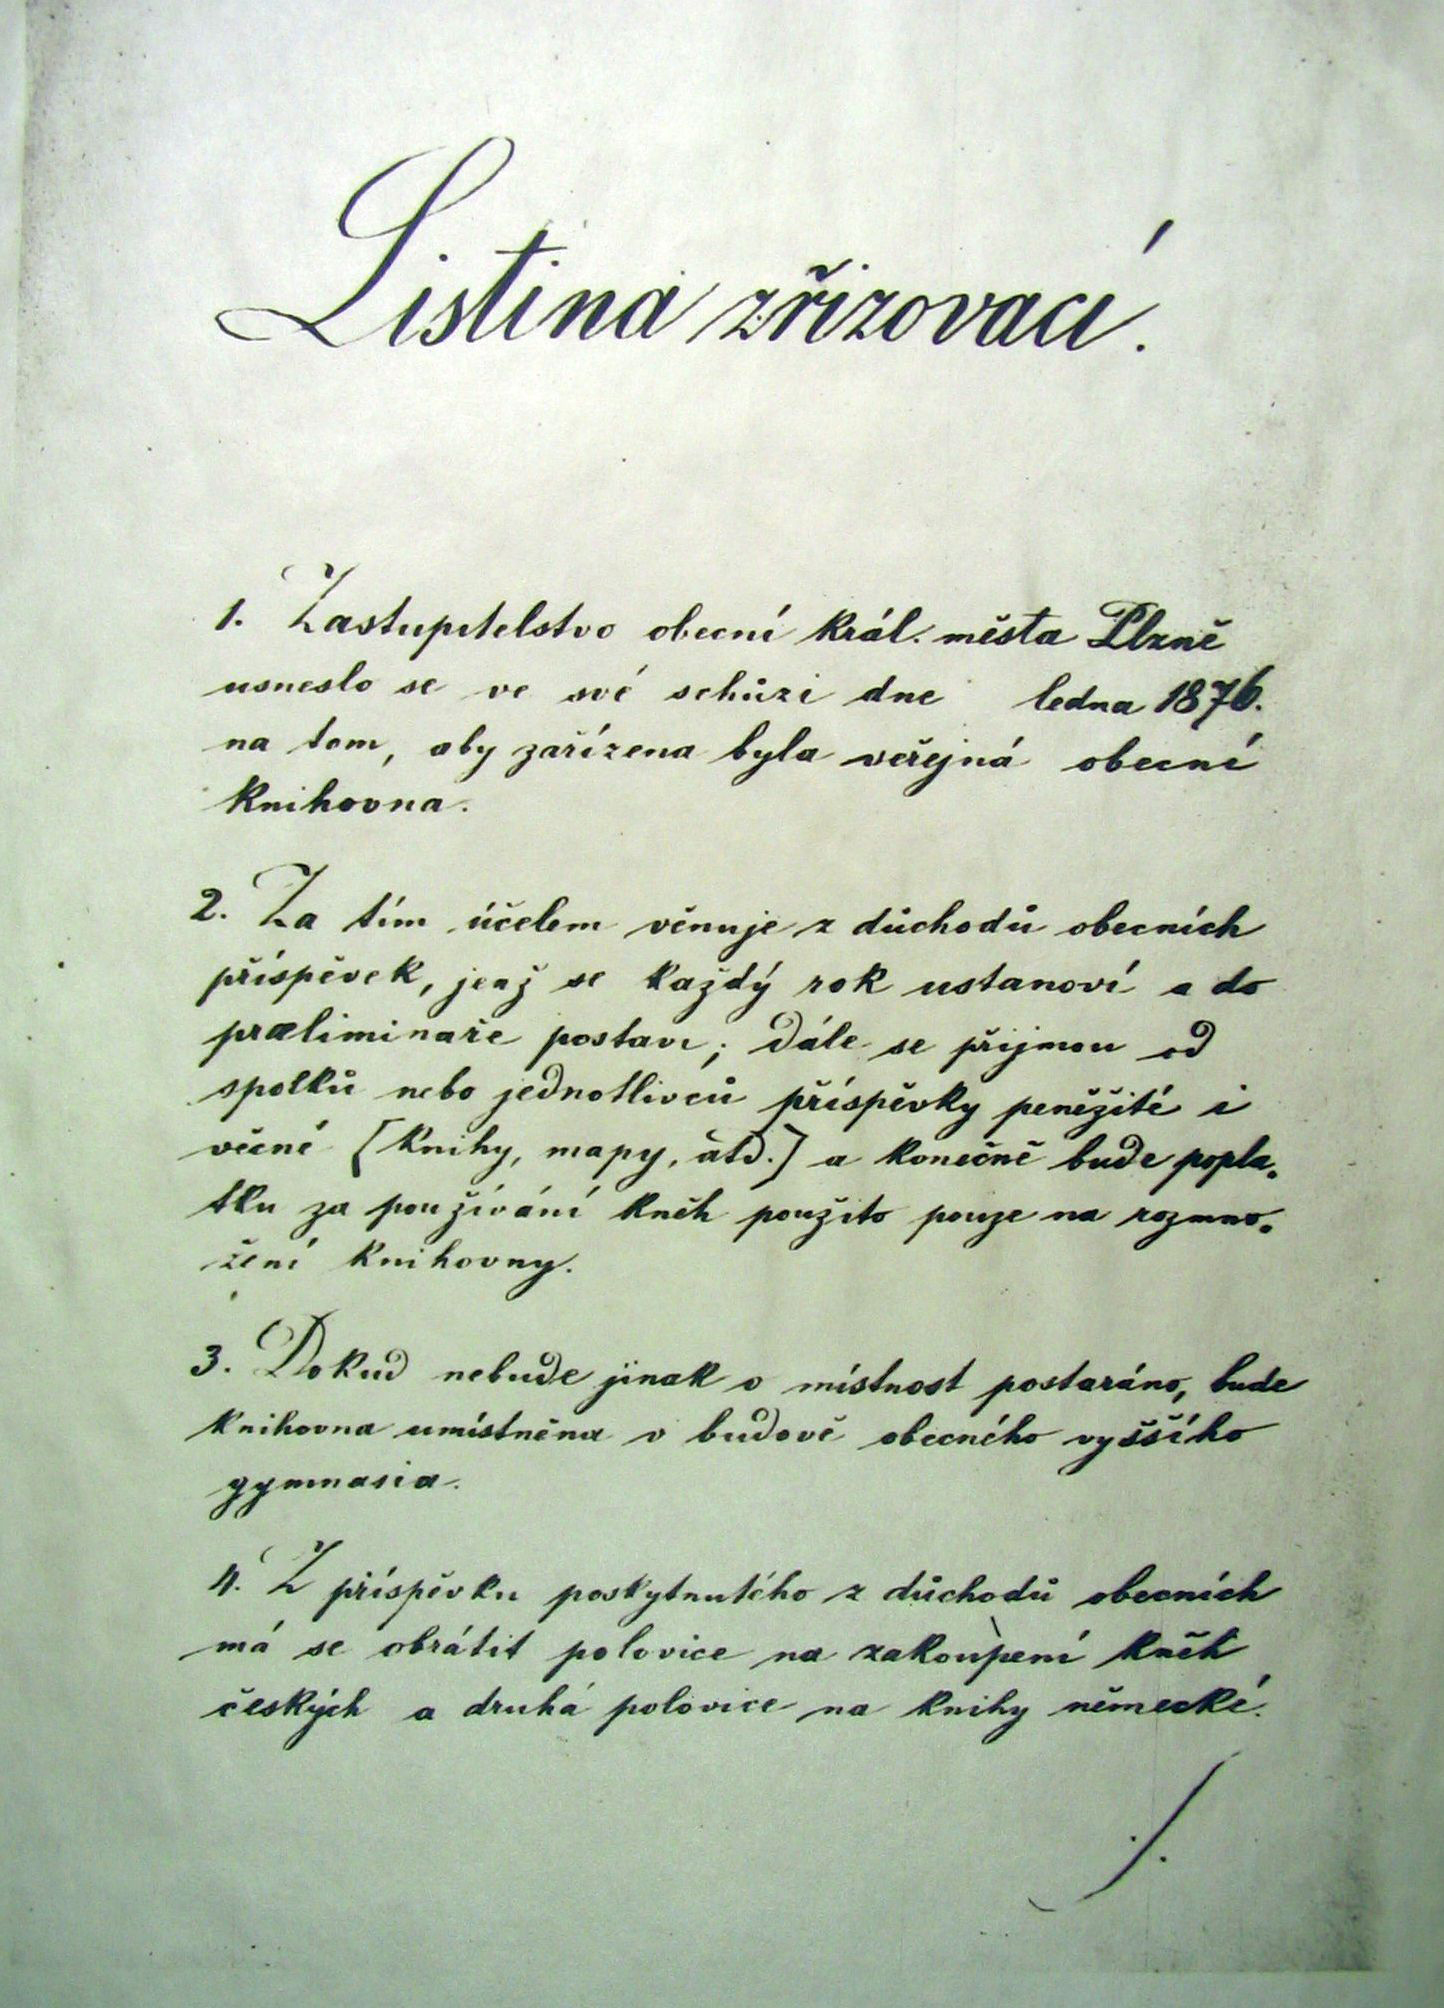 Listina zřizovací.
1. Zastupitelstvo obecní král. města Plzně
usneslo se ve své schůzi dne ledna 1876.
na tom, aby zařízena byla veřejná obecní
knihovna.
2. Za tím účelem věnuje z důchodů obecních
příspěvek, jenž se každý rok ustanoví a do
præliminaře postaví; dále se přijmou od
spolků nebo jednotlivců příspěvky peněžité i
věcné [knihy, mapy, atd.] a konečně bude popla-
tku za používání kněh použito pouze na rozmno-
žení knihovny.
3. Dokud nebude jinak o místnost postaráno, bude
knihovna umístněna v budově obecného vyššího
gymnasia.
4. Z příspěvku poskytnutého z důchodů obecních
má se obrátit polovice na zakoupení kněh
českých a druhá polovice na knihy německé.
./.